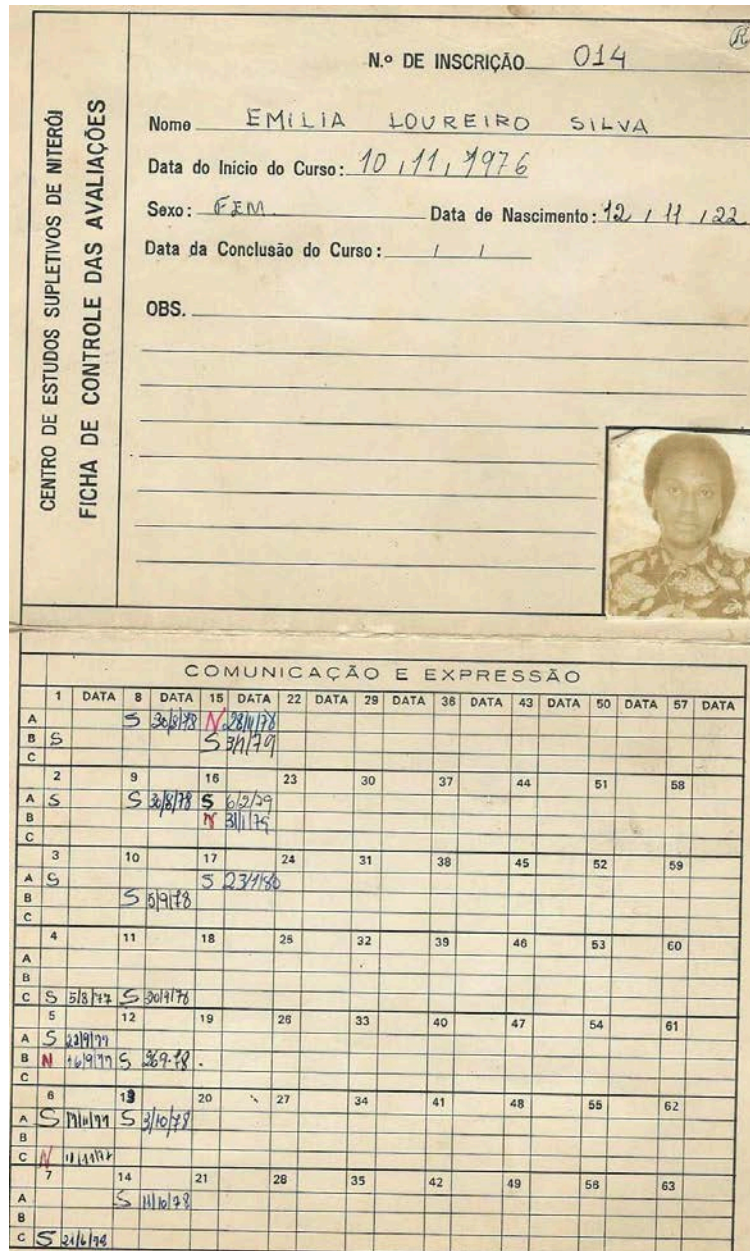 N.º DE INSCRIÇÃO 014
CENTRO DE ESTUDOS SUPLETIVOS DE NITERÓI
FICHA DE CONTROLE DAS AVALIAÇÕES
Nome EMILIA LOUREIRO SILVA
Data do Início do Curso: 10 / 11 / 1976
Sexo: FEM. Data de Nascimento: 12 / 11 / 22
Data da Conclusão do Curso: / /
OBS.
COMUNICAÇÃO E EXPRESSÃO
1 DATA 8 DATA 15 DATA 22 DATA 29 DATA 36 DATA 43 DATA 50 DATA 57 DATA
A S 30/8/78 N 28/11/78
B S S 3/1/79
C
2 9 16 23 30 37 44 51 58
A S S 30/8/78 S 6/2/79
B N 31/1/79
C
3 10 17 24 31 38 45 52 59
A S S 23/1/80
B S 5/9/78
C
4 11 18 25 32 39 46 53 60
A
B
C S 5/8/77 S
5 12 19 26 33 40 47 54 61
A S
B N 16/9/77 S
C
6 13 20 27 34 41 48 55 62
A S S 3/10/78
B
C N
7 14 21 28 35 42 49 56 63
A S 11/10/78
B
C S